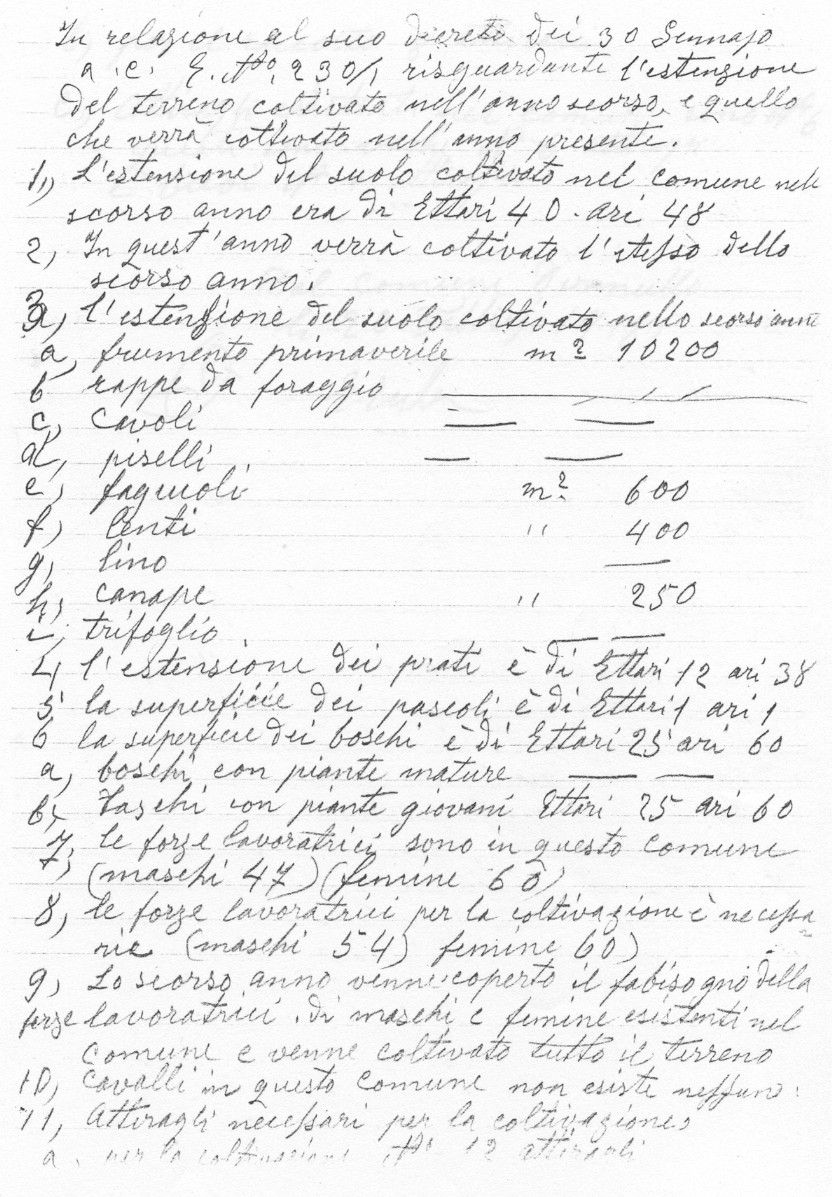 In relazione al suo decreto dei 30 Gennajo
a. c. E. No. 230/1 risguardante l'estenzione
del terreno coltivato nell'anno scorso, e quello
che verrà coltivato nell'anno presente.
1,, L'estensione del suolo coltivato nel comune nell
scorso anno era di Ettari 40. ari 48
2, In quest'anno verrà coltivato l'istesso dello
scorso anno.
3, l'estensione del suolo coltivato nello scorso anno
a, frumento primaverile m² 10200
b rappe da foraggio — — —
c, cavoli — —
d, piselli — —
e, fagiuoli m² 600
f) lenti " 400
g, lino —
h, canape " 250
i, trifoglio — —
4, l'estensione dei prati è di Ettari 12 ari 38
5 la superficie dei pascoli è di Ettari 1 ari 1
6 la superficie dei boschi è di Ettari 25 ari 60
a, boschi con piante mature — —
b, boschi con piante giovani Ettari 25 ari 60
7, le forze lavoratrici sono in questo comune
(maschi 47) (femine 60)
8, le forze lavoratrici per la coltivazione è necessa
rie (maschi 54) femine 60)
9, Lo scorso anno venne coperto il fabisogno della
forze lavoratrici. di maschi e femine esistenti nel
comune e venne coltivato tutto il terreno
10, Cavalli in questo comune non esiste nessuno.
11, Attiragli necessari per la coltivazione,
a. per la coltivazione No 12 attiragli